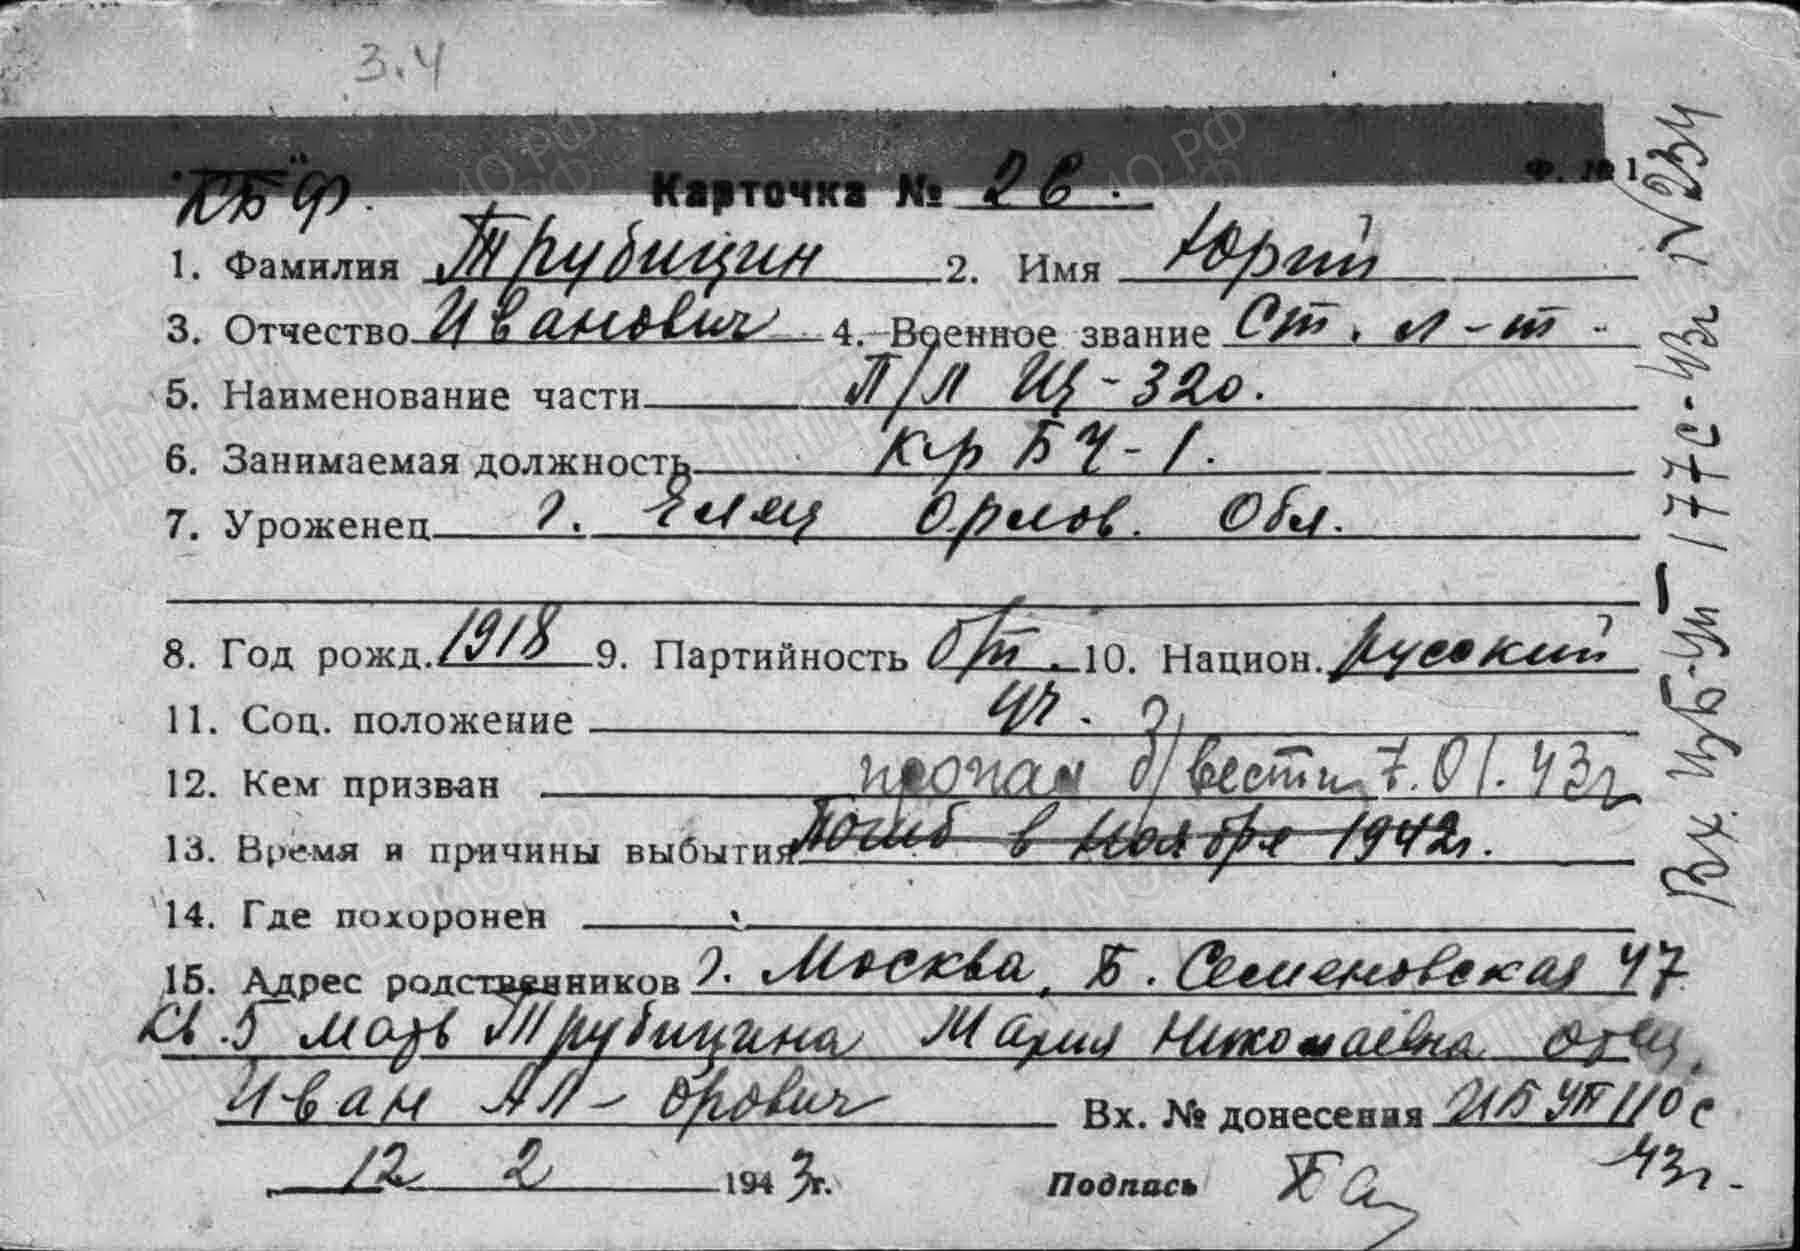 3.4
КБФ.
Ф. № 1
Карточка № 2в.
1. Фамилия Трубицин 2. Имя Юрий
3. Отчество Иванович 4. Военное звание Ст. л-т.
5. Наименование части П/Л Щ-320.
6. Занимаемая должность к-р БЧ-1.
7. Уроженец г. Елец Орлов. Обл.
8. Год рожд. 1918 9. Партийность б/п. 10. Национ. русский
11. Соц. положение уч.
12. Кем призван
пропал б/вести 7.01.43г
13. Время и причины выбытия Погиб в ноябре 1942г.
14. Где похоронен
15. Адрес родственников г. Москва, Б. Семеновская 47
кв. 5 мать Трубицина Мария Николаевна отец
Иван Ал-дрович Вх. № донесения ИБ УП 110с
43г.
12 2 1943г. Подпись
Вх. УП 177с-43г N234